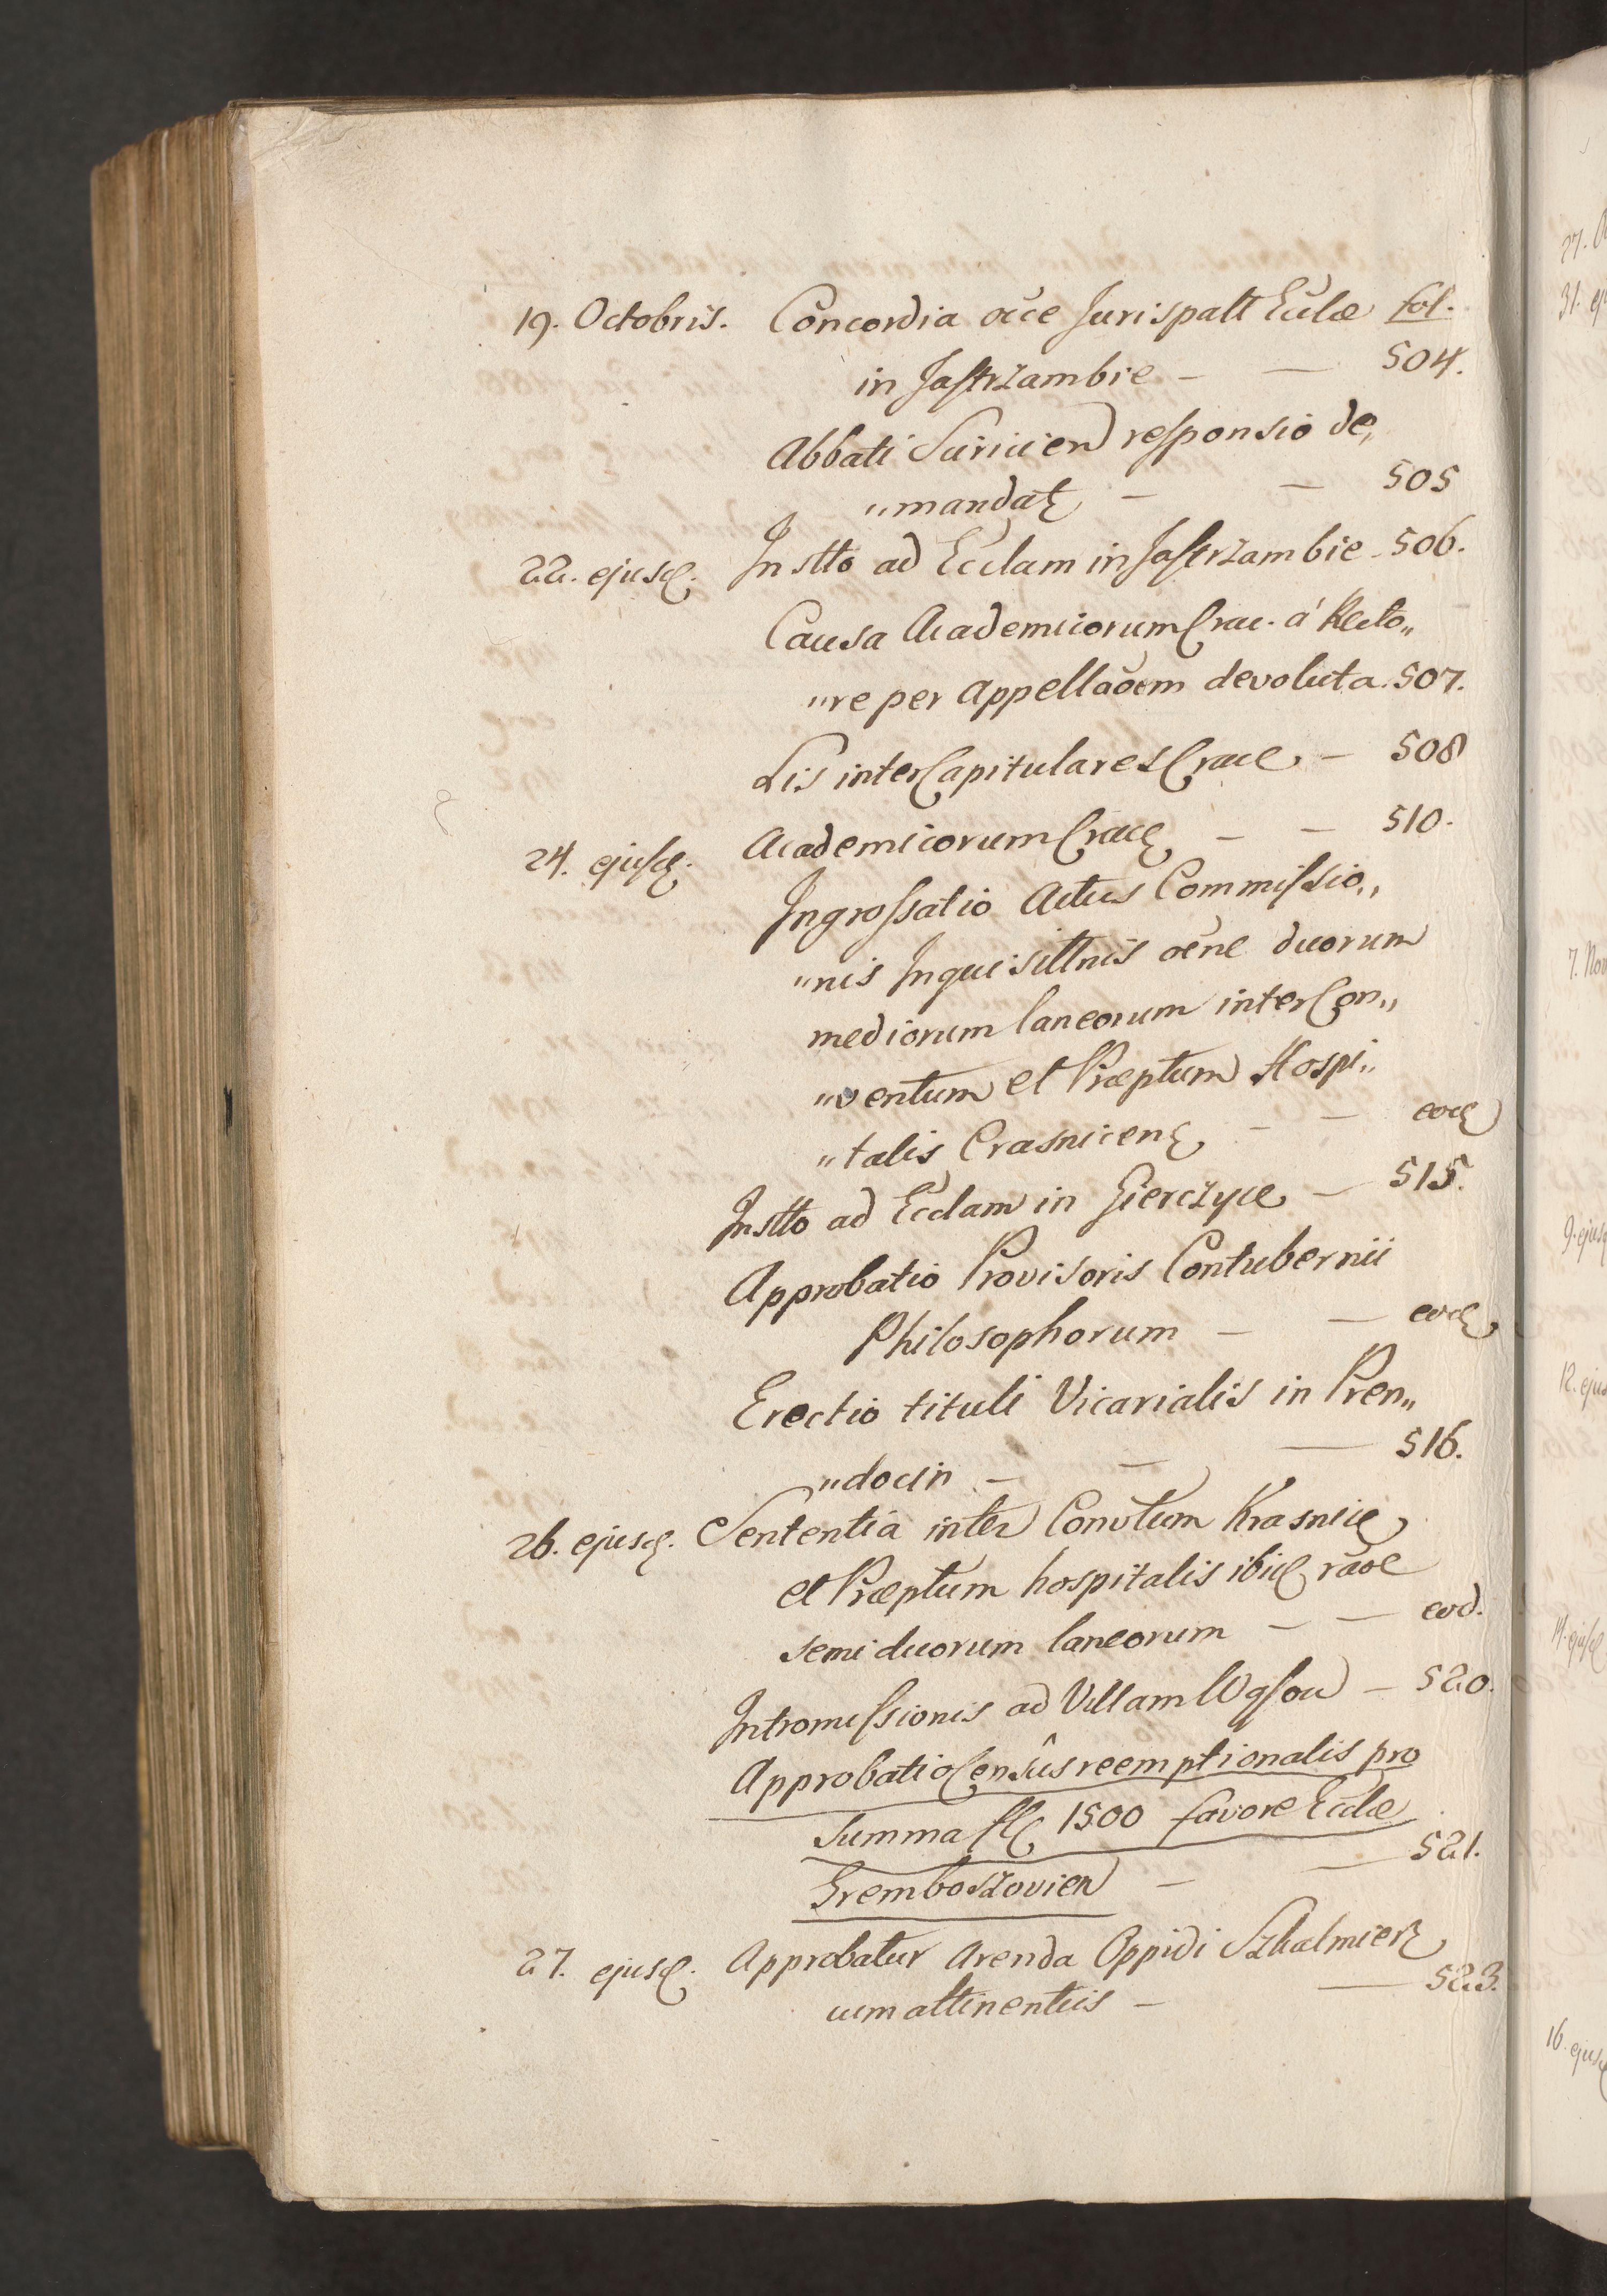 19. Octobris. Concordia oc̄e Jurispatt Eccłæ fol.
in Jastrzambie - — 504.
Abbati Suricien responsio de„
„mandat - — 505
22. ejusd. Instto ad Eccłam in Jastrzambie - 506.
Causa Academicorum Crac. á Recto„
„re per appellaōem devoluta. 507.
Lis inter Capitulares Crace — 508
24. ejusd. Academicorum Crace - — 510.
Ingrossatio Actus Commissio„
„nis Inquisittnis oēne duorum
mediorum laneorum inter Con„
„ventum et Præptum Hospi„
„talis Crasnicen - — eod
Instto ad Eccłam in Gierczyce — 515.
Approbatio Provisoris Contubernii
Philosophorum - — eod
Erectio tituli Vicarialis in Pren„
„docin - — — 516.
26. ejusd. Sententia inter Convtum Krasnice
et Præptum hospitalis ibid rāoe
semiduorum laneorum - — eod.
Intromissionis ad Villam — 520.
Approbatio Censûs reemptionalis pro
Summa fl 1500 favore Eccłæ
Gremboszovien - — 521.
27. ejusd. Approbatur Arenda Oppidi Szkalmier
cum attinentiis - — 523.
27.
31. ej
7. Nov
9. ejus
12. ejus
14. ejusd
16. ejusd